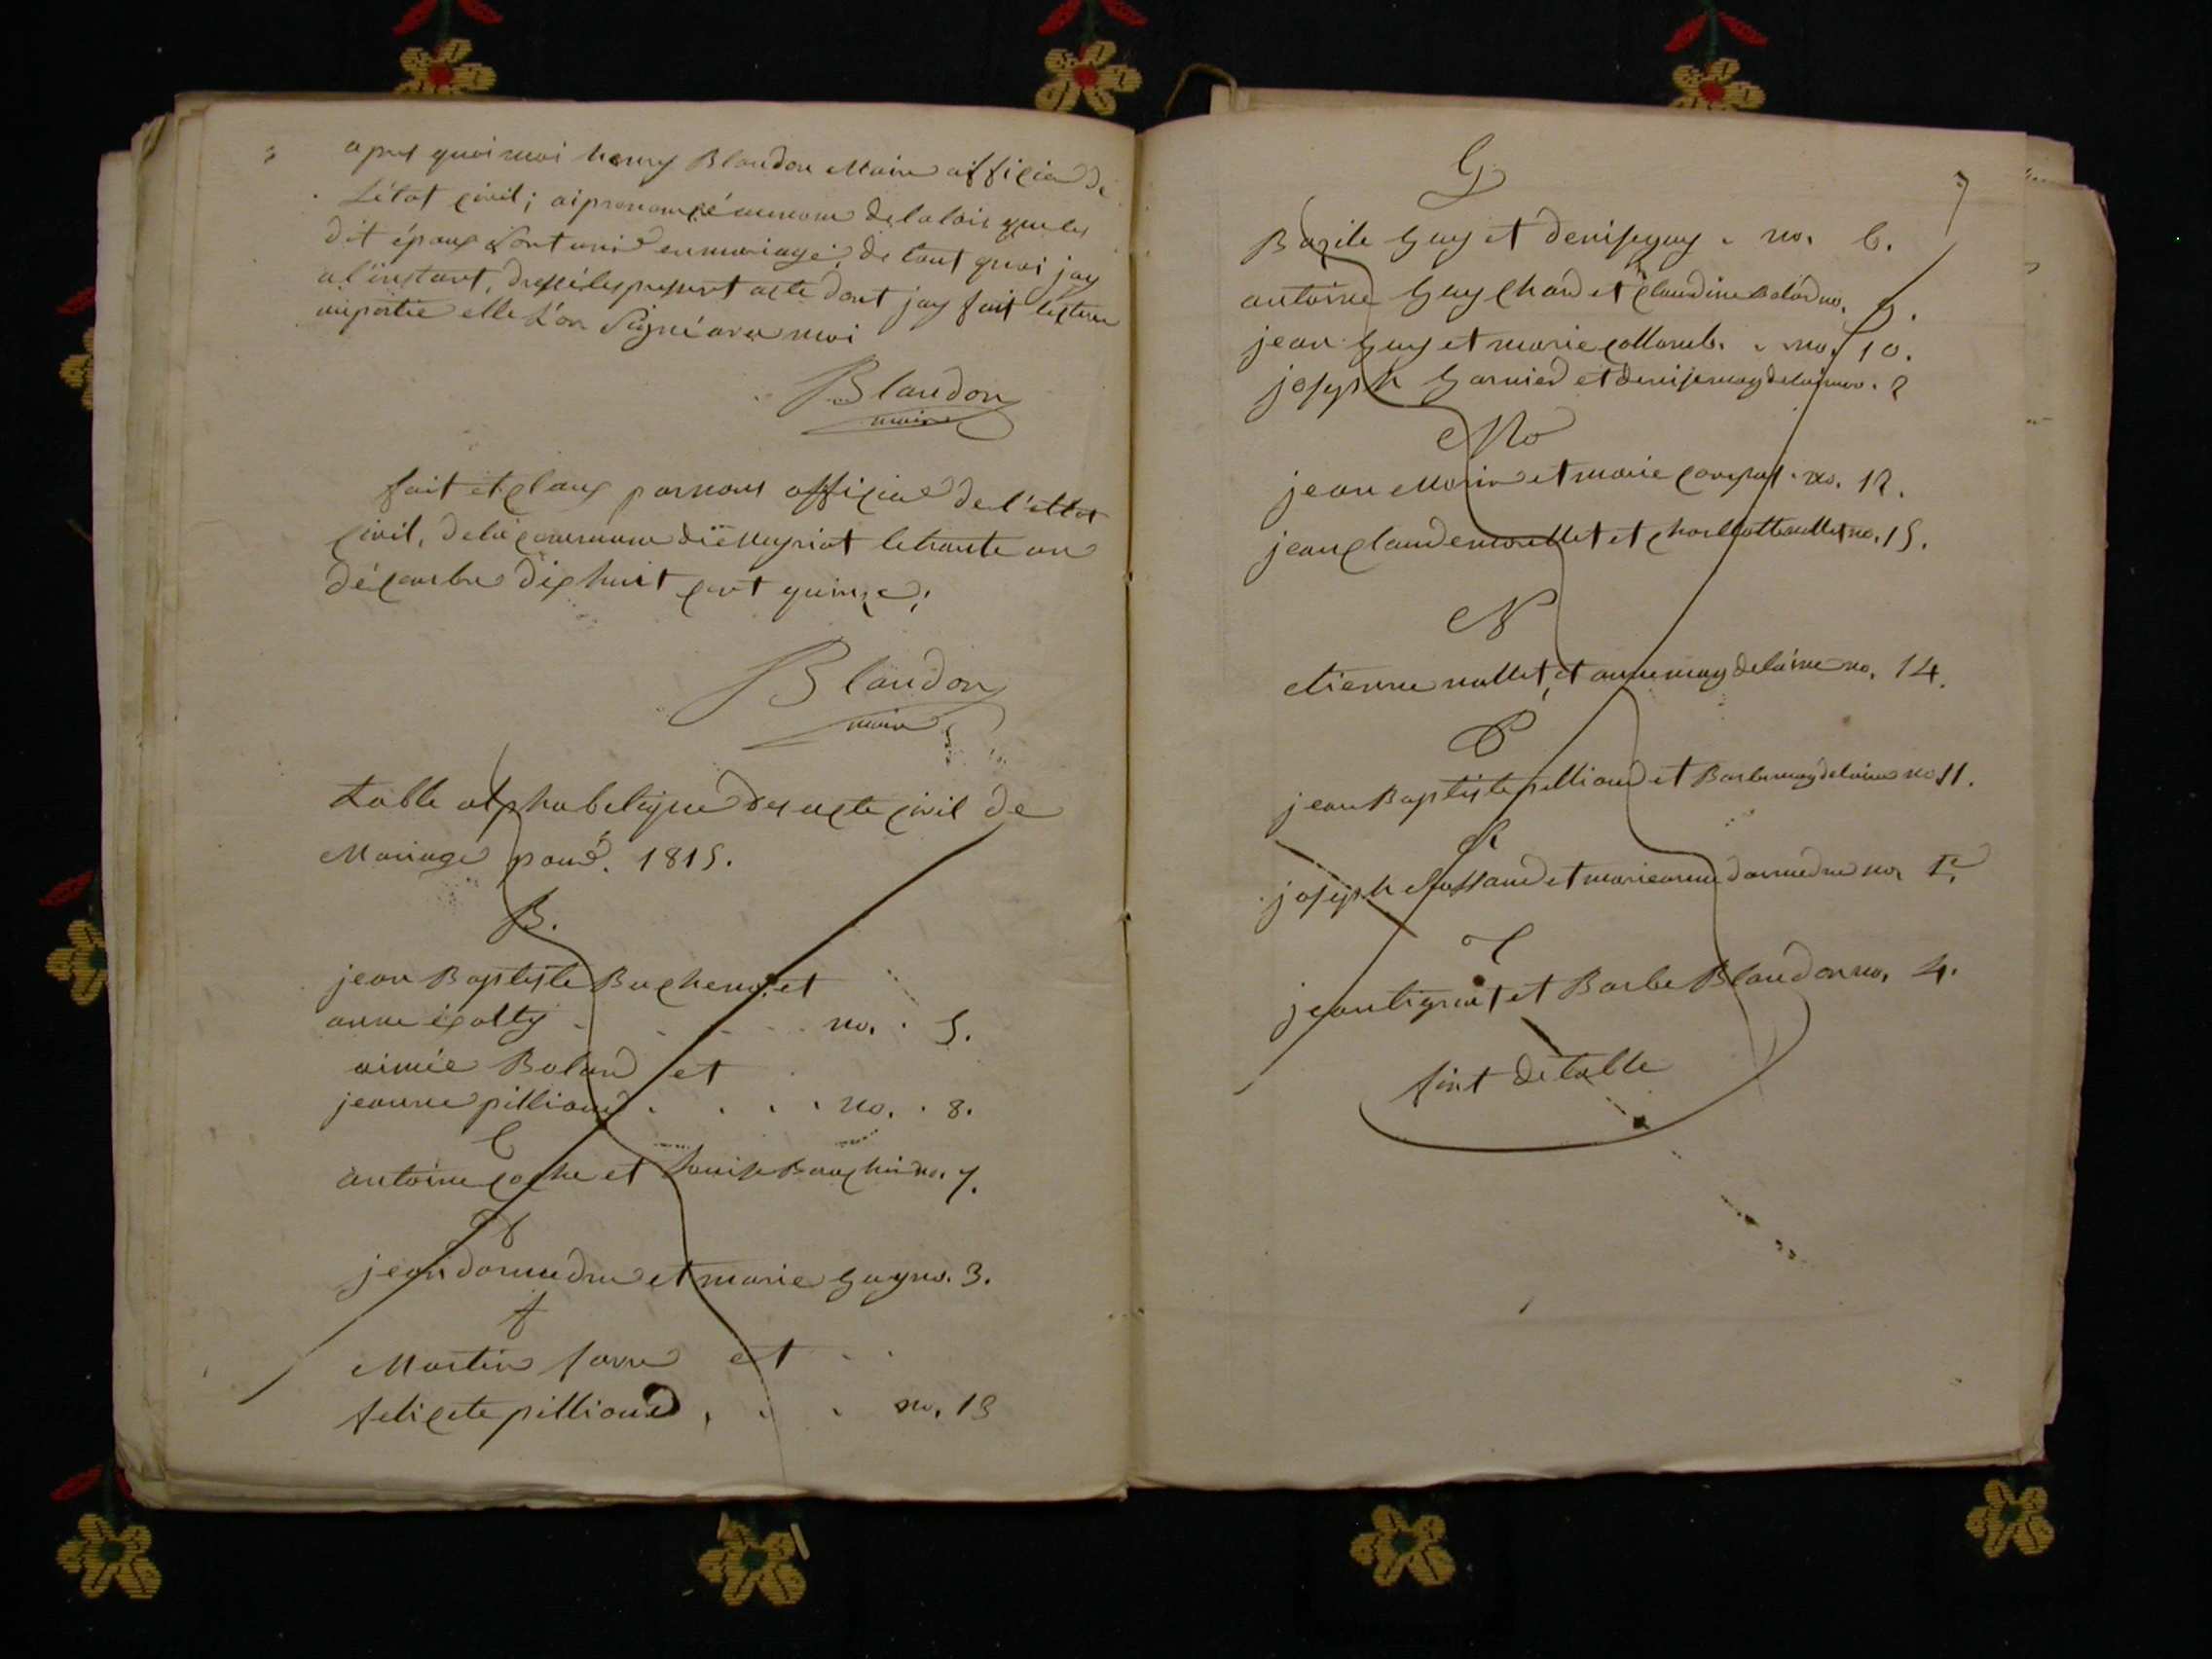 apres quoi moi henry Blandon Maire officier de
L'état civil; ai prononcé aunom delalois queles
dit époux Sont unis enmariage, de tout quoi jay
a l'instant, dressé lepresent acte dont jay fait lecture
auxpartie elle L'on Signé avec moi
Blandon
maire
fait et claux parnous officier de l'ettat
civil, dela commune dieMeyriat letrante un
décembre dixhuit cent quinze;
Blandon
maire
table alphabetique des acte civil de
Mariage pour. 1815.
B.
jean Baptiste Buchene et
anne . . . no. . 5.
aimée Boland et
jeanne pilliond . . . . no. . 8.
C
antoine coche et Louise no. 7.
D
jean et marie Guy no. 3.
f
Martin favre et . .
felicete pilliond . . . no. 13
G
7
Bazile Guy et denise guy . no. 6.
antoine Guychard et claudine Bolard no. 9.
jean Guy et marie collomb. . no. 10.
joseph Garnier et denise magdelaine no. 2
M
jean Morin et marie no. 12.
jean claude morellet et no. 15.
N
etienne nallet, et anne magdelaine no. 14.
P
jean Baptiste pilliond et Barbe magdelaine no 11.
R
joseph et marie anne no. 1er
T
jean tignat et Barbe Blandon no. 4.
fint de table